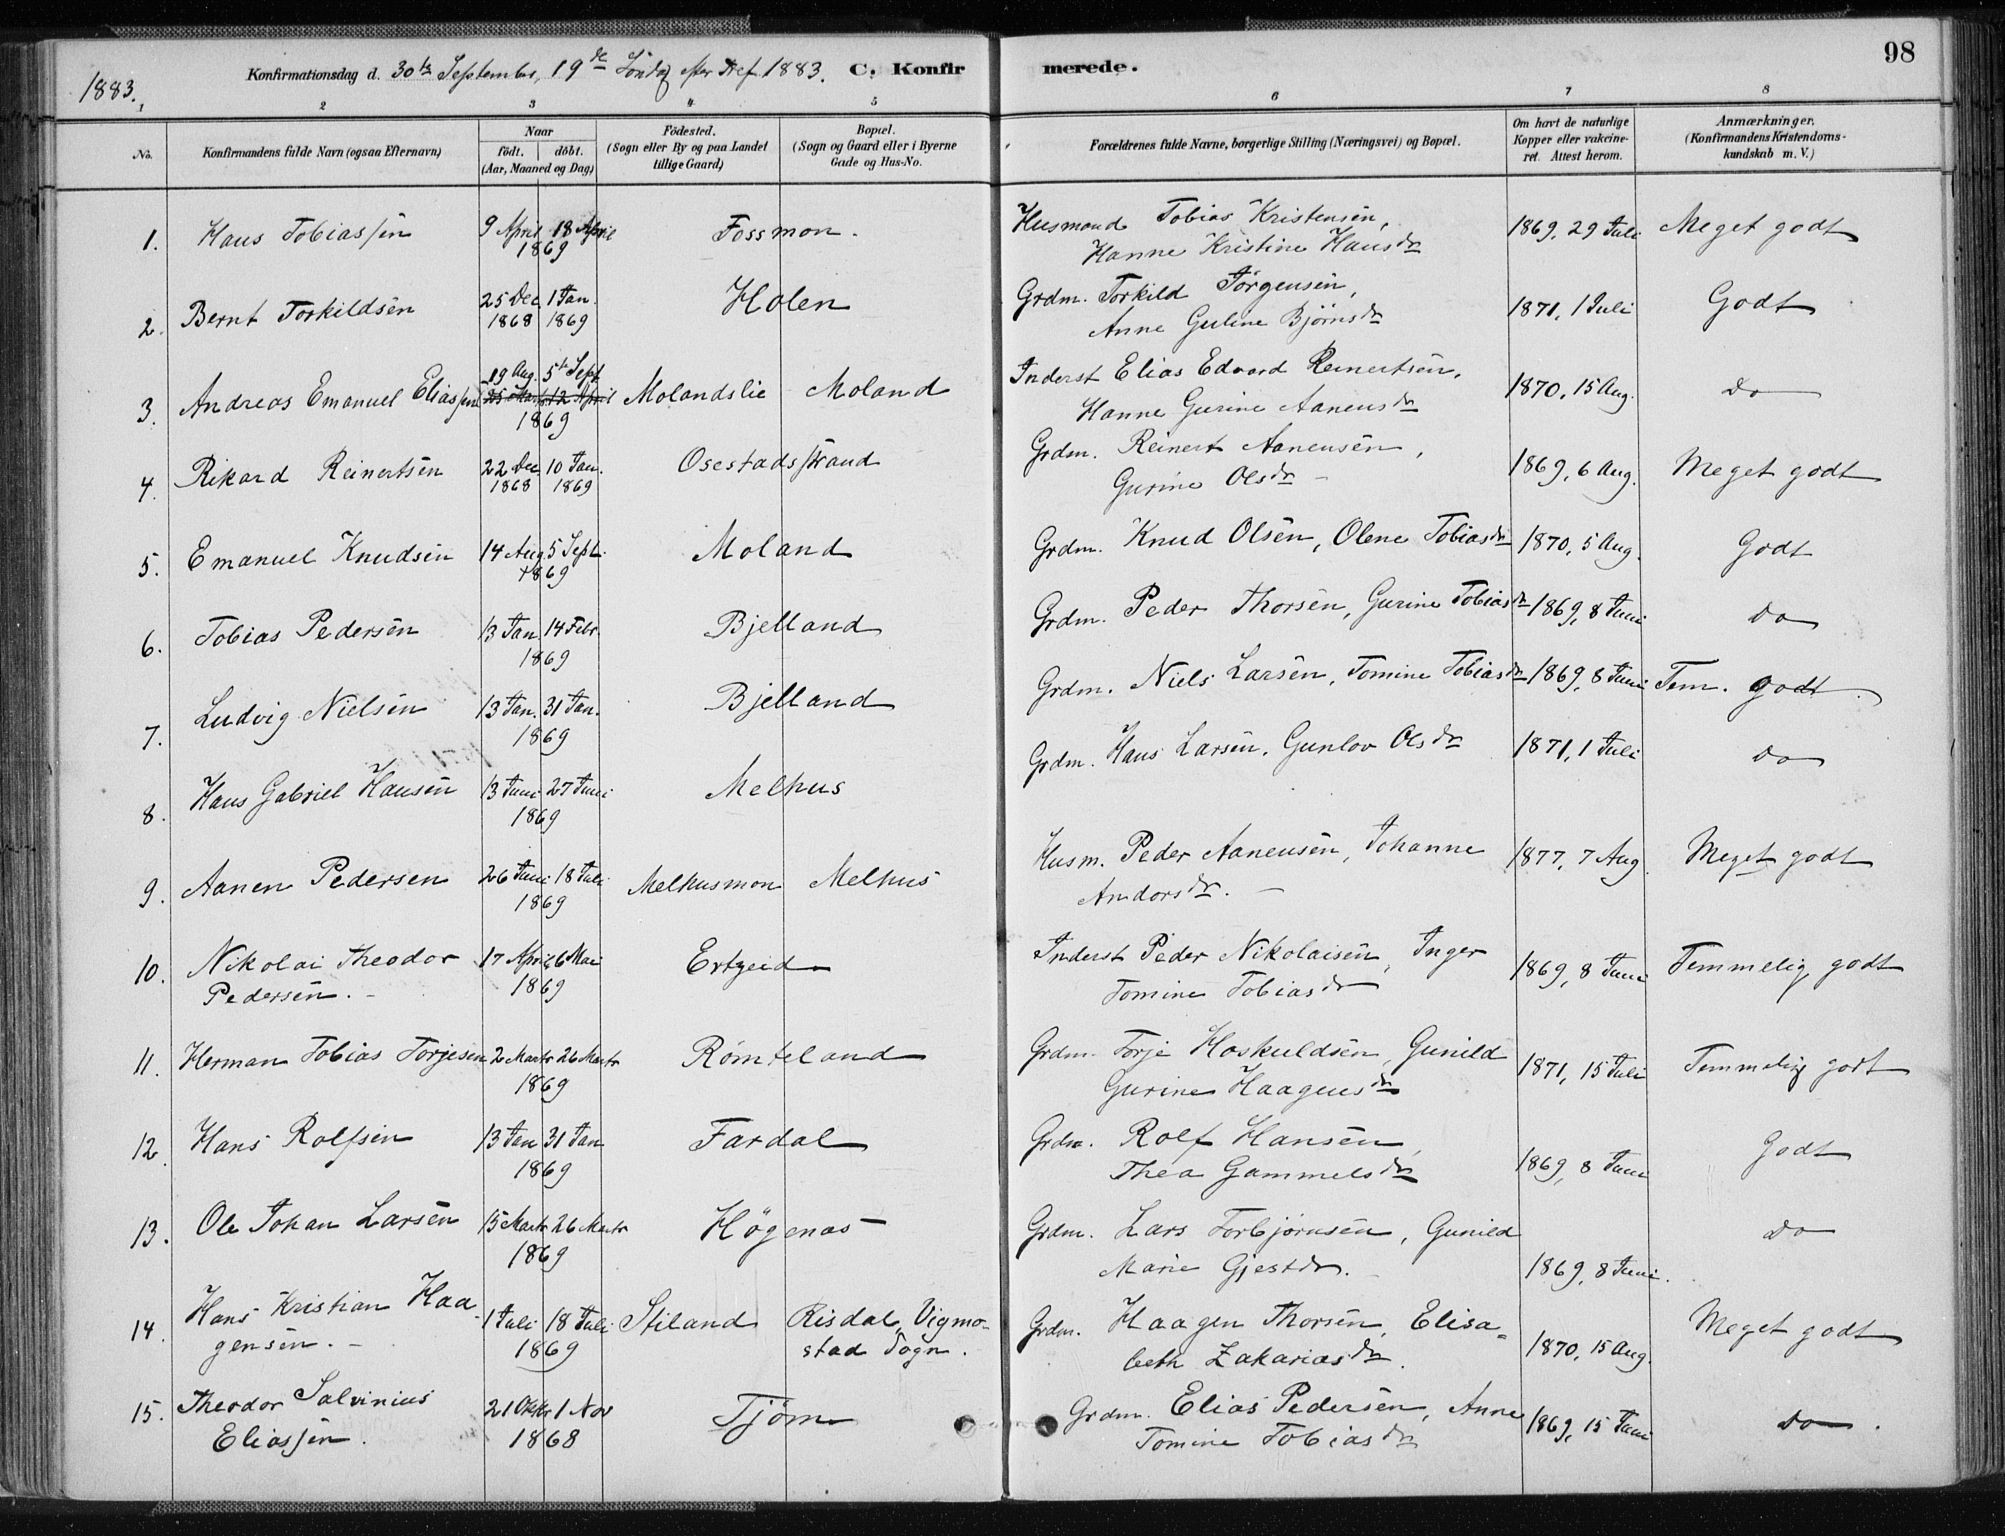 98
1883.
Konfirmationsdag d. 30te September, 19de Søndag efter Tref. 1883. C. Konfirmerede.
1 2 3 4 5 6 7 8
No.
Konfirmandens fulde Navn (ogsaa Efternavn)
Naar
födt. döbt.
(Aar, Maaned og Dag)
Födested.
(Sogn eller By og paa Landet
tillige Gaard)
Bopæl.
(Sogn og Gaard eller i Byerne
Gade og Hus-No.
Forældrenes fulde Navne, borgerlige Stilling (Næringsvei) og Bopæl.
Om havt de naturlige
Kopper eller vakcine-
ret. Attest herom.
Anmærkninger.
(Konfirmandens Kristendoms-
kundskab m. V.)
1. Hans Tobiassen 9 April 18 April Fossmon. Husmand Tobias Kristensen, 1869, 29 Juli Meget godt
1869 Hanne Kristine Hansdr
2. Bernt Torkildsen 25 Dec. 1 Jan. Holen Grdm. Torkild Jörgensen, 1871, 1 Juli Godt
1868 1869 Anne Guline Björnsdr
3. Andreas Emanuel Eliassen 19 Aug. 5te Sept Molandslie Moland Inderst Elias Edvard Reinertsen, 1870, 15 Aug. Do
25 Marts 12 April
1869 Hanne Gurine Aanensdr
4. Rikard Reinertsen 22 Dec 10 Jan. Osestadstrand Grdm. Reinert Aanensen, 1869, 6 Aug. Meget godt
1868 1869 Gurine Olsdr
5. Emanuel Knudsen 14 Aug 5 Sept. Moland Grdm. Knud Olsen, Olene Tobiasdr 1870, 5 Aug. Godt
1869
6. Tobias Pedersen 13 Jan 14 Febr. Bjelland Grdm. Peder Thorsen, Gurine Tobiasdr 1869, 8 Juni Do
1869
7. Ludvig Nielsen 13 Jan. 31 Jan. Bjelland Grdm. Niels Larsen, Tomine Tobiasdr 1869, 8 Juni Tem. godt.
1869
8. Hans Gabriel Hansen 13 Juni 27 Juni Melhus Grdm. Hans Larsen, Gunlov Olsdr 1871, 1 Juli Do
1869
9. Aanen Pedersen 26 Juni 18 Juli Melhusmon Melhus Husm. Peder Aanensen, Johanne 1877, 7 Aug. Meget godt
1869 Andorsdr.
10. Nikolai Theodor 17 April 6 Mai Ertzeid Inderst Peder Nikolaisen, Inger 1869, 8 Juni Temmelig godt
Pedersen. 1869 Tomine Tobiasdr
11. Herman Tobias Torjesen 2 Marts 26 Marts Römteland Grdm. Torje Hoskuldsen, Gunild 1871, 15 Juli Temmelig godt
1869 Gurine Haagensdr
12. Hans Rolfsen 13 Jan 31 Jan Fardal Grdm. Rolf Hansen, 1869, 8 Juni Godt
1869 Thea Gammelsdr
13. Ole Johan Larsen 15 Marts 26 Marts Högenas Grdm. Lars Torbjörnsen, Gunild Do
1869 Marie Gjestdr. 1869, 8 Juni.
14. Hans Kristian Haa- 1 Juli 18 Juli Stiland Risdal, Vigmo- Grdm. Haagen Thorsen, Elisa- 1870, 15 Aug. Meget godt
gensen. 1869 stad Sogn. beth Zakariasdr.
15. Theodor Salvinius 21 Oktbr 1 Nov Tjöm Grdm. Elias Pedersen, Anne 1869, 15 Juni Do.
Eliassen. 1868 Tomine Tobiasdr